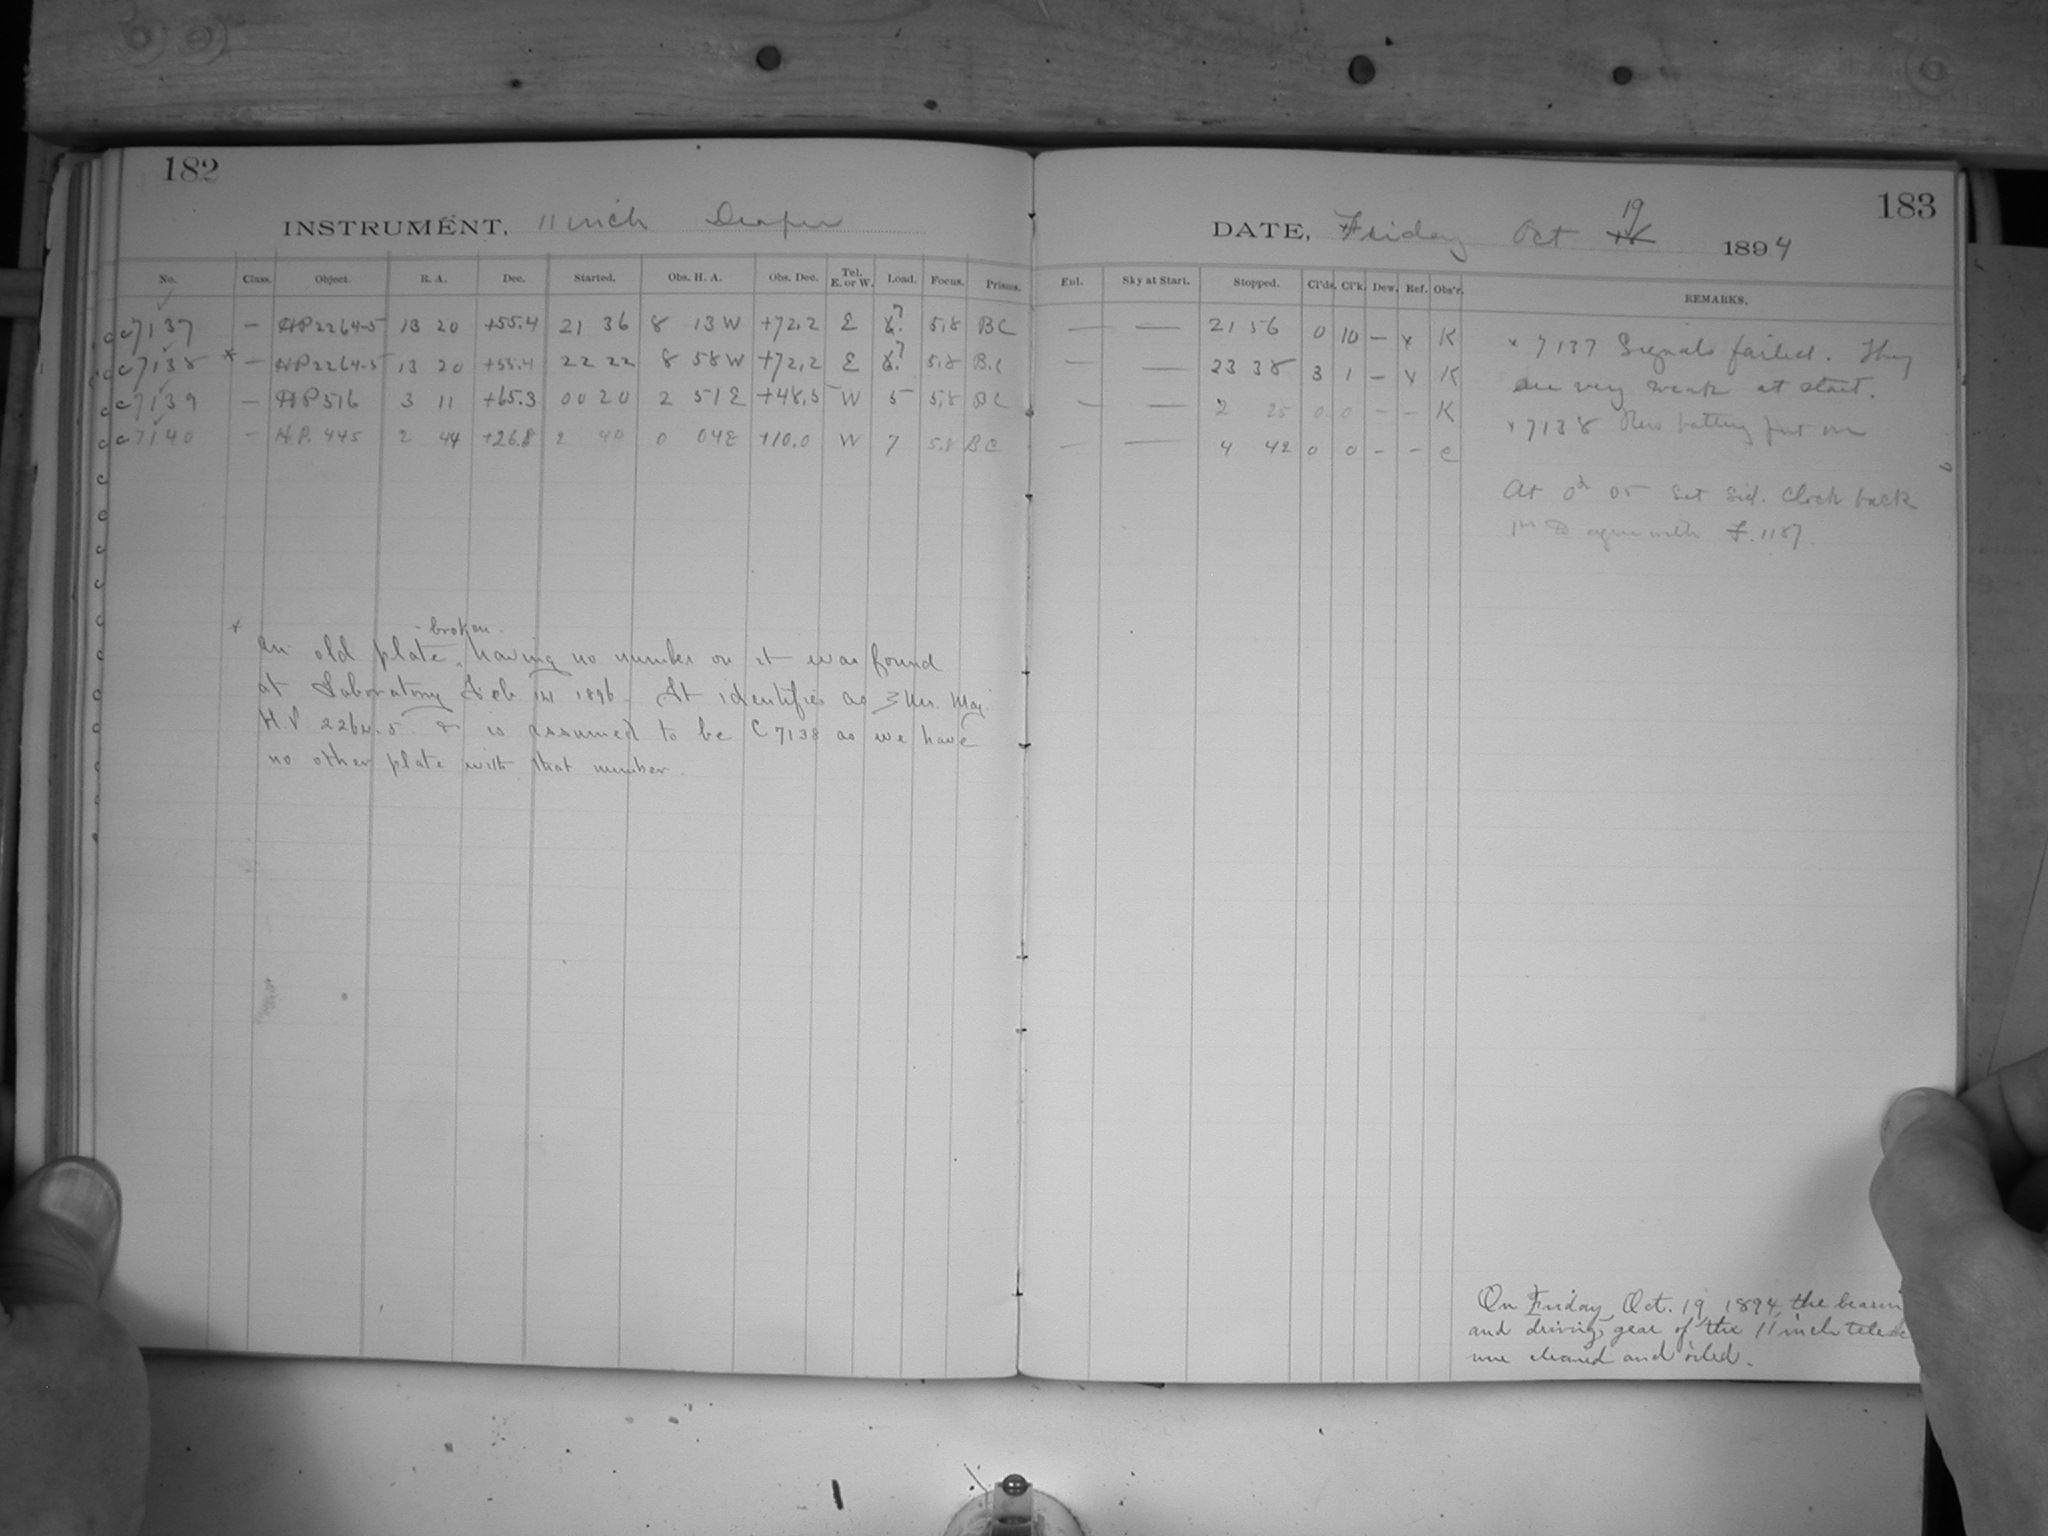 182
INSTRUMENT, 11 inch Draper
No. Class. Object. R. A. Dec. Started. Obs. H. A. Obs. Dec. Tel. E. or W. Load. Focus. Prisms.
c7137 — HP2264-5 13 20 +55.4 21 36 8 13 W +72.2 E 5.8 BC
c7138 * — HP2264-5 13 20 +55.4 22 22 8 58 W +72.2 E 5.8 B.C
c7139 — HP516 3 11 +65.3 00 20 2 51 E +48.5 W 5 5.8 BC
c7140 — H.P. 445 2 44 +26.8 2 40 0 04 E +10.0 W 7 5.8 BC
* An old plate, broken having no number on it was found
at Laboratory Feb 14 1896 – It identifies as ζ Urs. Maj.
H.P 2264-5 & is assumed to be C 7138 as we have
no other plate with that number.
183
DATE, Friday Oct 19 1894
Enl. Sky at Start. Stopped. Cl'ds. Cl'k. Dew. Ref. Obs'r. REMARKS.
— — 21 56 0 10 – x K
— — 23 38 3 1 – x K
— — 2 25 0 0 – – K
— — 4 42 0 0 – – C
x 7137 Signals failed. They
are very weak at start.
x 7138 New battery put on
At 0h 05 set Sid. Clock back
1m to agree with F. 1187.
On Friday Oct. 19, 1894, the
and driving gear of the 11 inch
were cleaned and oiled.